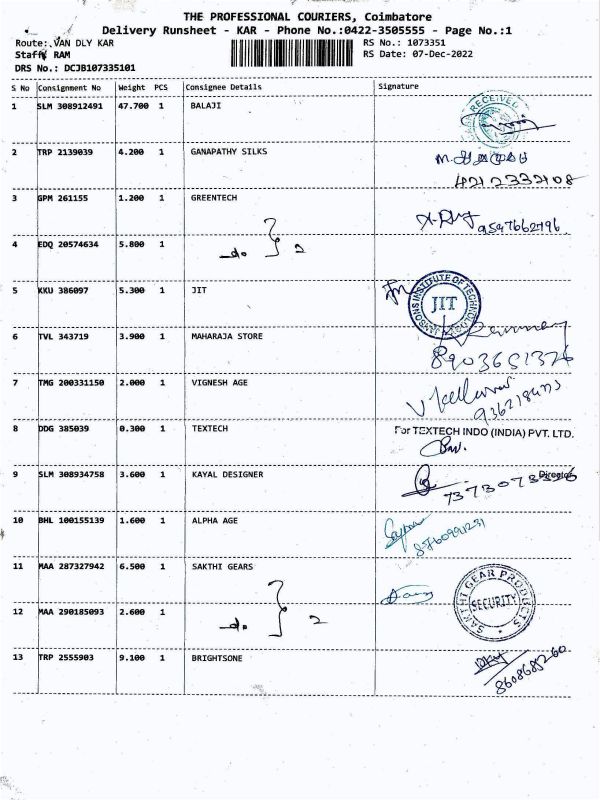 THE PROFESSIONAL COURIERS, Coimbatore
Delivery Runsheet - KAR - Phone No.:0422-3505555 - Page No.:1
Route: VAN DLY KAR
RS No.: 1073351
Staff: RAM
RS Date: 07-Dec-2022
DRS No.: DCJB107335101
S No Consignment No Weight PCS Consignee Details Signature
1 SLM 308912491 47.700 1 BALAJI
RECEIVED
2 TRP 2139039 4.200 1 GANAPATHY SILKS
4212332108
3 GPM 261155 1.200 1 GREENTECH
9597662796
4 EDQ 20574634 5.800 1 -do. } 2
5 KKU 386097 5.300 1 JIT
JANSONS INSTITUTE OF TECHNOLOGY
JIT
6 TVL 343719 3.900 1 MAHARAJA STORE
8903651326
7 TMG 200331150 2.000 1 VIGNESH AGE
8 DDG 385039 0.300 1 TEXTECH
For TEXTECH INDO (INDIA) PVT. LTD.
Director
9 SLM 308934758 3.600 1 KAYAL DESIGNER
10 BHL 100155139 1.600 1 ALPHA AGE
8760991231
11 MAA 287327942 6.500 1 SAKTHI GEARS
SAKTHI GEAR PRODUCTS
SECURITY
12 MAA 290185093 2.600 1 -do. } 2
13 TRP 2555903 9.100 1 BRIGHTSONE
8608685260